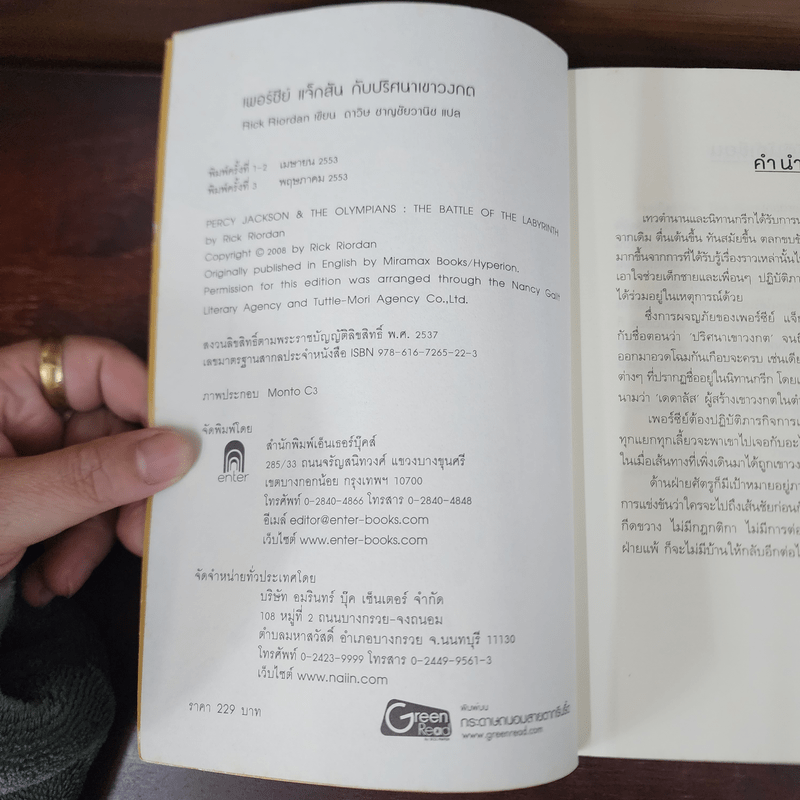 เพอร์ซีย์ แจ็กสัน กับปริศนาเขาวงกต
Rick Riordan เขียน ดาวิษ ชาญชัยวานิช แปล
พิมพ์ครั้งที่ 1-2 เมษายน 2553
พิมพ์ครั้งที่ 3 พฤษภาคม 2553
PERCY JACKSON & THE OLYMPIANS : THE BATTLE OF THE LABYRINTH
by Rick Riordan
Copyright © 2008 by Rick Riordan
Originally published in English by Miramax Books/Hyperion.
Permission for this edition was arranged through the Nancy Galt
Literary Agency and Tuttle-Mori Agency Co.,Ltd.
สงวนลิขสิทธิ์ตามพระราชบัญญัติลิขสิทธิ์ พ.ศ. 2537
เลขมาตรฐานสากลประจำหนังสือ ISBN 978-616-7265-22-3
ภาพประกอบ Monto C3
จัดพิมพ์โดย
enter
สำนักพิมพ์เอ็นเธอร์บุ๊คส์
285/33 ถนนจรัญสนิทวงศ์ แขวงบางขุนศรี
เขตบางกอกน้อย กรุงเทพฯ 10700
โทรศัพท์ 0-2840-4866 โทรสาร 0-2840-4848
อีเมล์ editor@enter-books.com
เว็บไซต์ www.enter-books.com
จัดจำหน่ายทั่วประเทศโดย
บริษัท อมรินทร์ บุ๊ค เซ็นเตอร์ จำกัด
108 หมู่ที่ 2 ถนนบางกรวย-จงถนอม
ตำบลมหาสวัสดิ์ อำเภอบางกรวย จ.นนทบุรี 11130
โทรศัพท์ 0-2423-9999 โทรสาร 0-2449-9561-3
เว็บไซต์ www.naiin.com
ราคา 229 บาท
Green Read
พิมพ์บน
กระดาษถนอมสายตากรีนรี้ด
www.greenread.com
คำนำ
เทวตำนานและนิทานกรีกได้รับการ
จากเดิม ตื่นเต้นขึ้น ทันสมัยขึ้น ตลกขบขัน
มากขึ้นจากการที่ได้รับรู้เรื่องราวเหล่านั้น
เอาใจช่วยเด็กชายและเพื่อนๆ ปฏิบัติ
ได้ร่วมอยู่ในเหตุการณ์ด้วย
ซึ่งการผจญภัยของเพอร์ซีย์
กับชื่อตอนว่า 'ปริศนาเขาวงกต' จน
ออกมาอวดโฉมกันเกือบจะครบ เช่น
ต่างๆ ที่ปรากฏชื่ออยู่ในนิทานกรีก
นามว่า 'เดดาลัส' ผู้สร้างเขาวงกต
เพอร์ซีย์ต้องปฏิบัติภารกิจการ
ทุกแยกทุกเลี้ยวจะพาเขาไปเจอกับ
ในเมื่อเส้นทางที่เพิ่งเดินมาได้ถูก
ด้านฝ่ายศัตรูก็มีเป้าหมายอยู่
การแข่งขันว่าใครจะไปถึงเส้นชัยก่อน
กีดขวาง ไม่มีกฎกติกา ไม่มีการ
ฝ่ายแพ้ ก็จะไม่มีบ้านให้กลับอีก